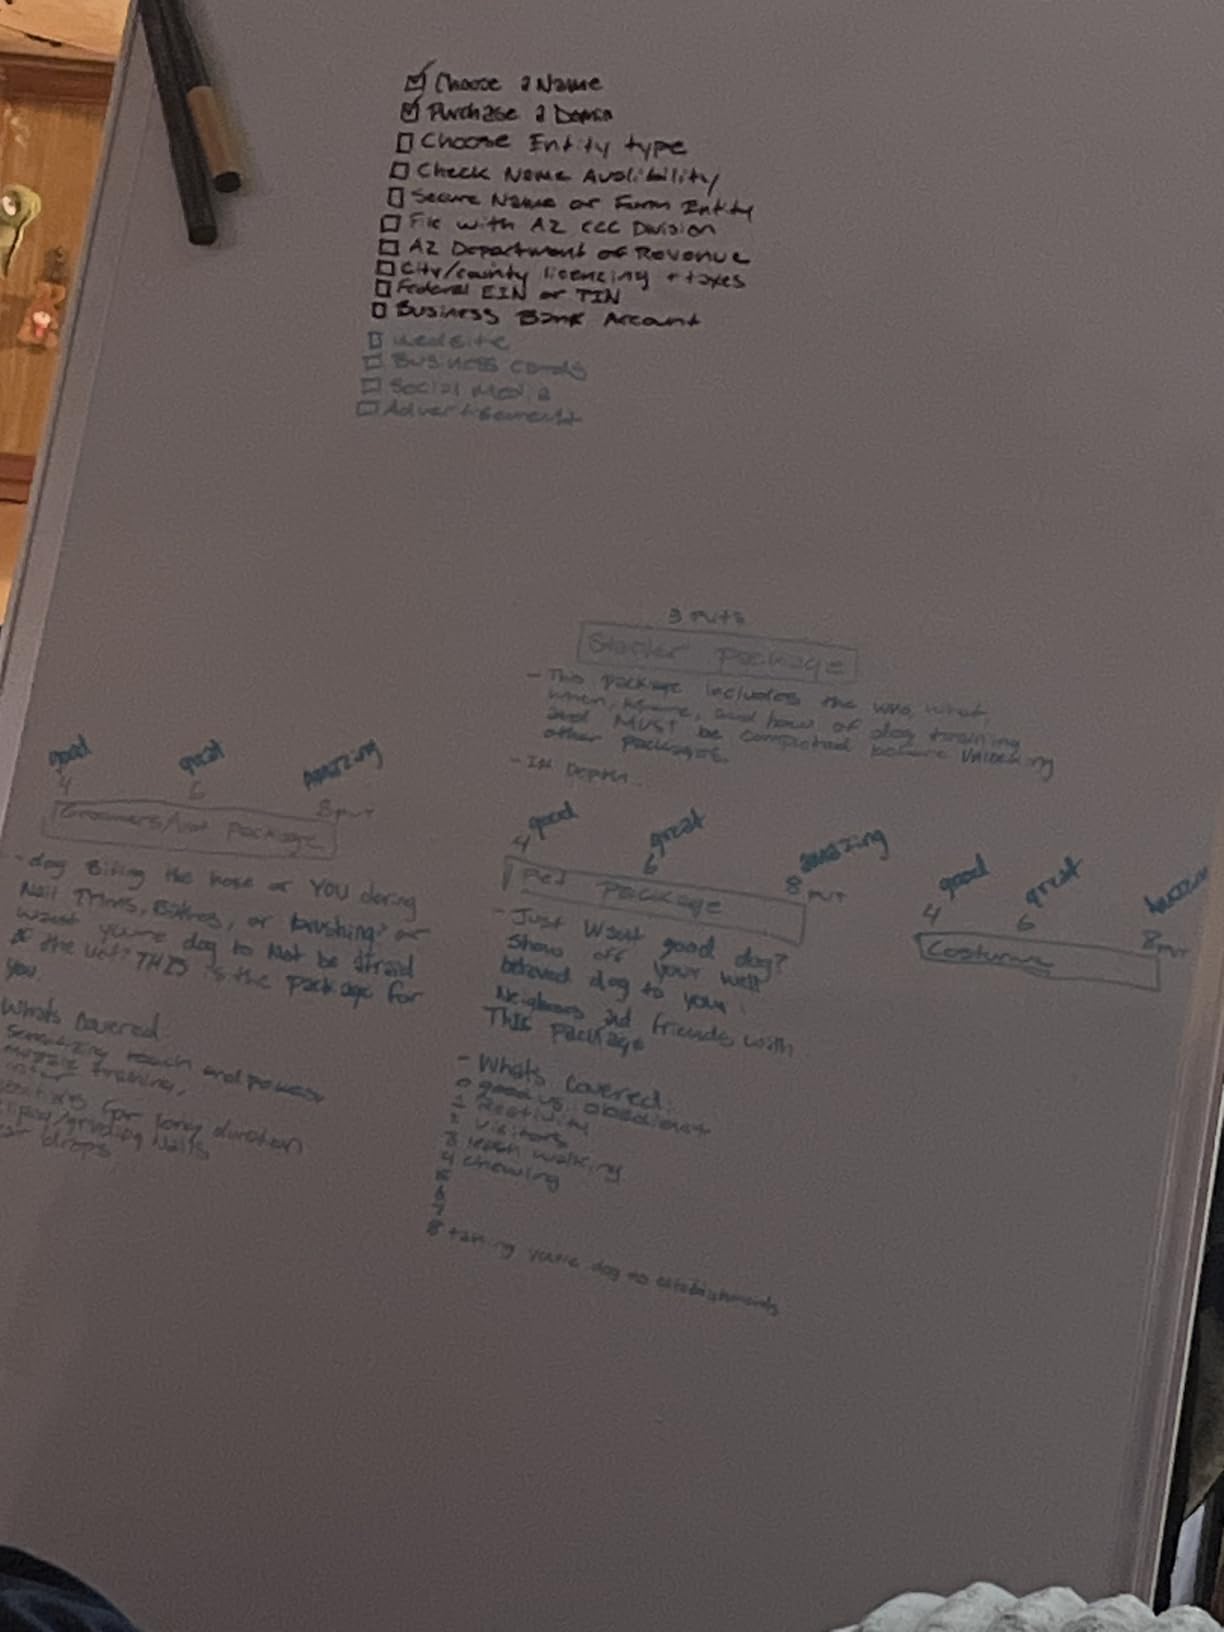 Choose a Name
Purchase a Domain
Choose Entity type
Check Name Avalibility
Secure Name or Form Entity
File with AZ CCC Division
AZ Department of Revenue
City/county licencing + taxes
Federal EIN or TIN
Business Bank Account
Website
Business cards
Social Media
Advertisement
Starter package
- This package includes the who, what,
when, where, and how of dog training
and MUST be completed before unlocking
other packages.
- In Depth...
good great Amazing
4 6 8
Groomers/Vet package
- dog Biting the hose or YOU during
Nail Trims, Baths, or brushing? or
want you're dog to Not be afraid
of the vet? THIS is the package for
you.
Whats covered:
touch and
training,
for long duration
/grinding Nails
drops
good great amazing
4 6 8
Pet package
- Just want good dog?
Show off your well
beloved dog to your
Neighbors and friends with
This Package
- Whats covered:
0 good vs. obedient
1 Reactivity
2 visitors
3 leash walking
4 chewing
5
6
7
8 taking you're dog to establishments
good great
4 6 8
Costume